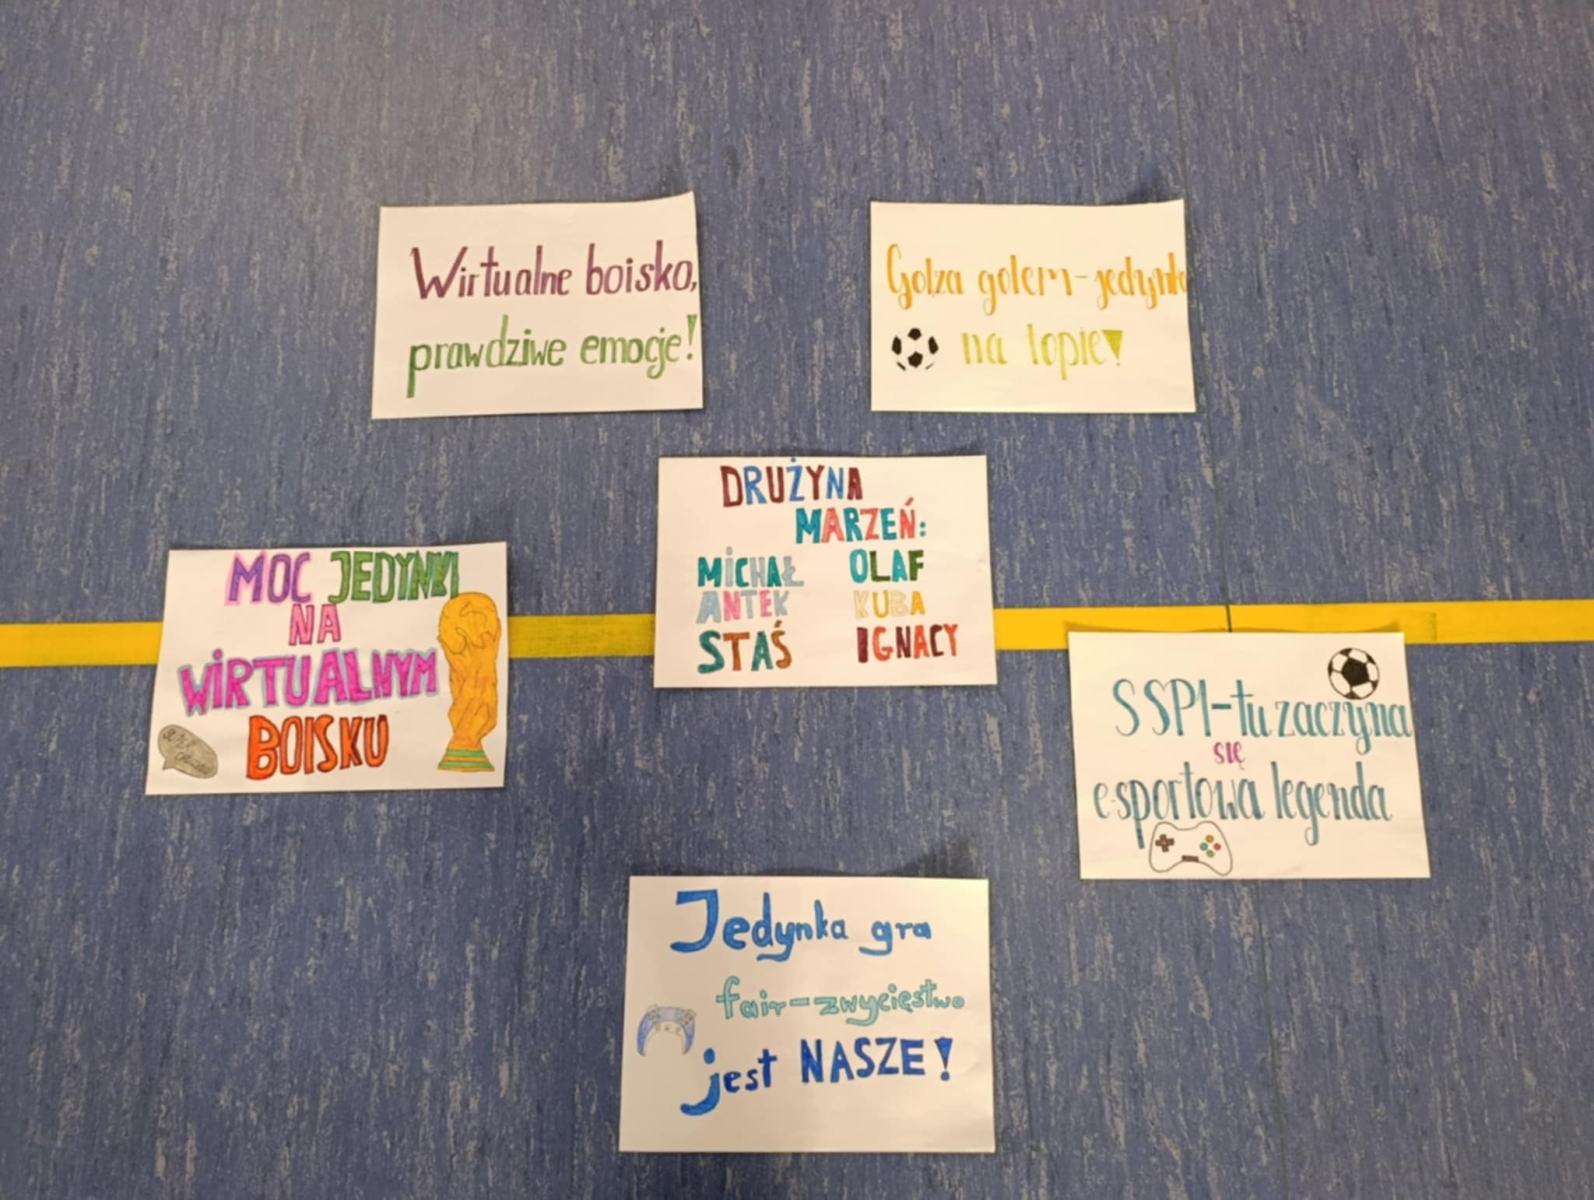 Wirtualne boisko,
prawdziwe emocje!
Golza golem-jedynka
na topie!
DRUŻYNA
MARZEŃ:
MICHAŁ OLAF
ANTEK KUBA
STAŚ IGNACY
MOC JEDYNKI
NA
WIRTUALNYM
BOISKU
SSP1-tu zaczyna
się
e-sportowa legenda
Jedynka gra
fair-zwycięstwo
jest NASZE!